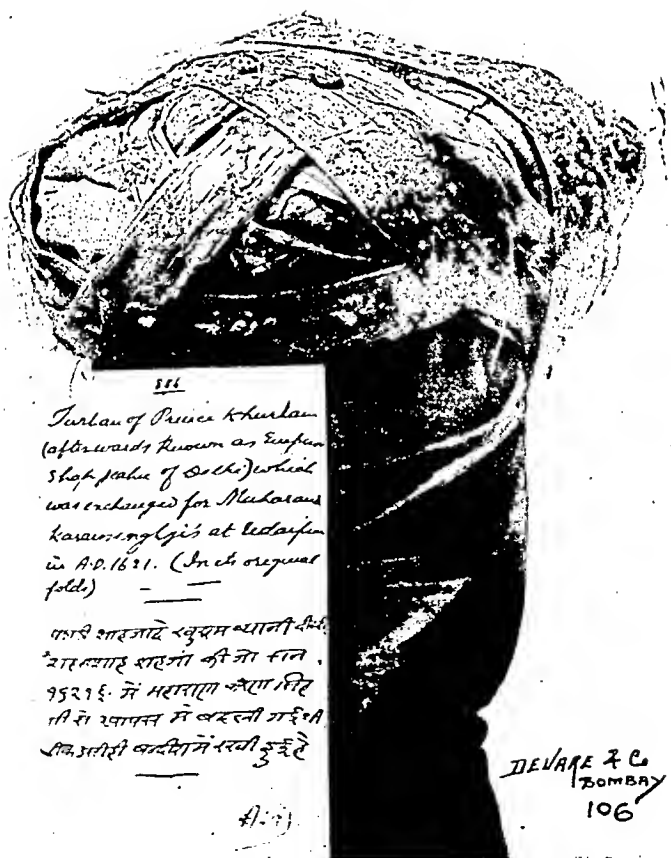 886
Turban of Prince Khurlam
(afterwards Known as Emperor
Shah Jeahn of Delhi) which
was exchanged for Maharana
Karansinghji's at Udaipur
in A.D. 1621. (In its original
folds)
पगडी शाहजादे खुरम यानी
शाहनशाह शाहजां की जो सन
में महाराणा करण सिंह
जी से आपस में बदली गई थी
बन्दीश में रखी हुई है
DEVARE & Co
BOMBAY
106